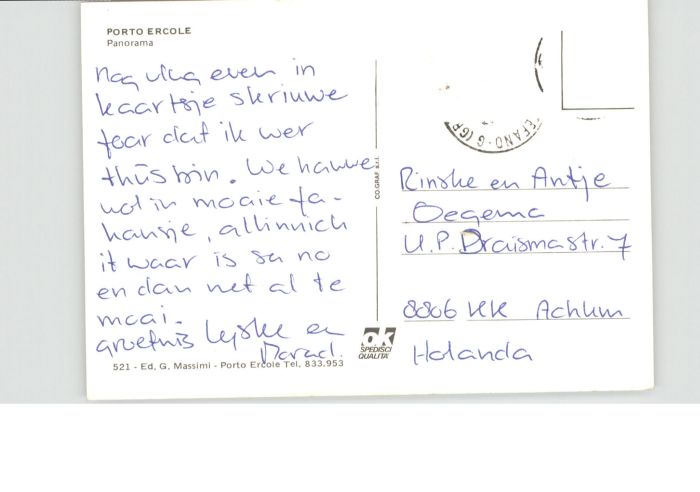 PORTO ERCOLE
Panorama
nog vlug even in
kaartsje skriuwe
foar dat ik wer
thús bin. We hawwe
wol in moaie fa-
kansje, allinnich
it waar is sa no
en dan net al te
moai.
groetnis Lyske en
Rinske en Antje
Oegema
U.P. Draismastr. 7
8806 KK Achlum
Holanda
CO.GRAF s.r.l.
EFANO-G (GR
ok
SPEDISCI
QUALITÀ
521 - Ed. G. Massimi - Porto Ercole Tel. 833.953